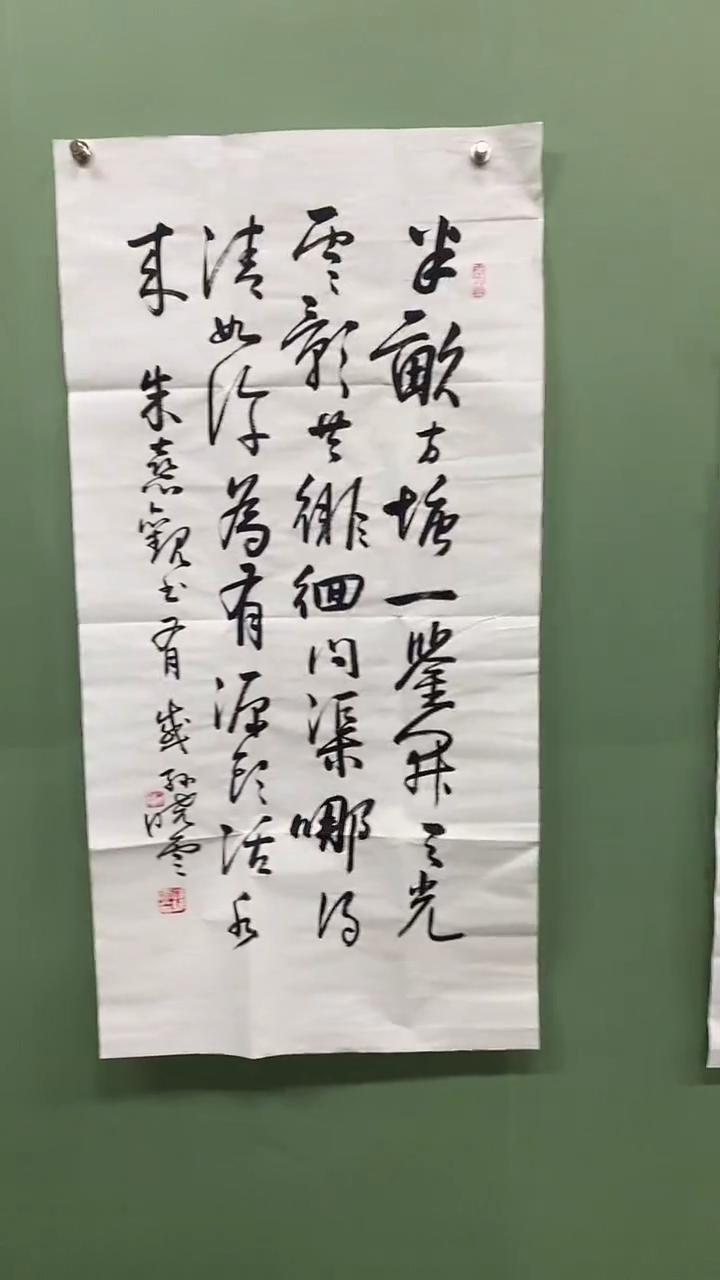 半畝方塘一鑒開天光
雲影共徘徊問渠哪得
清如許為有源頭活水
來 朱熹觀书有感 孙晓雲